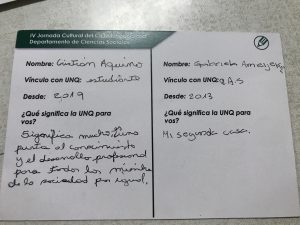 IV Jornada Cultural del
Departamento de Ciencias Sociales
Nombre: Cristian Aquino
Vínculo con UNQ: estudiante
Desde: 2019
¿Qué significa la UNQ para
vos?
Significa mucho, una
puerta al conocimiento
y el desarrollo profesional
para todos los miembros
de la sociedad por igual.
Nombre: Gabriela
Vínculo con UNQ: P.A.S
Desde: 2013
¿Qué significa la UNQ para
vos?
Mi segunda casa.